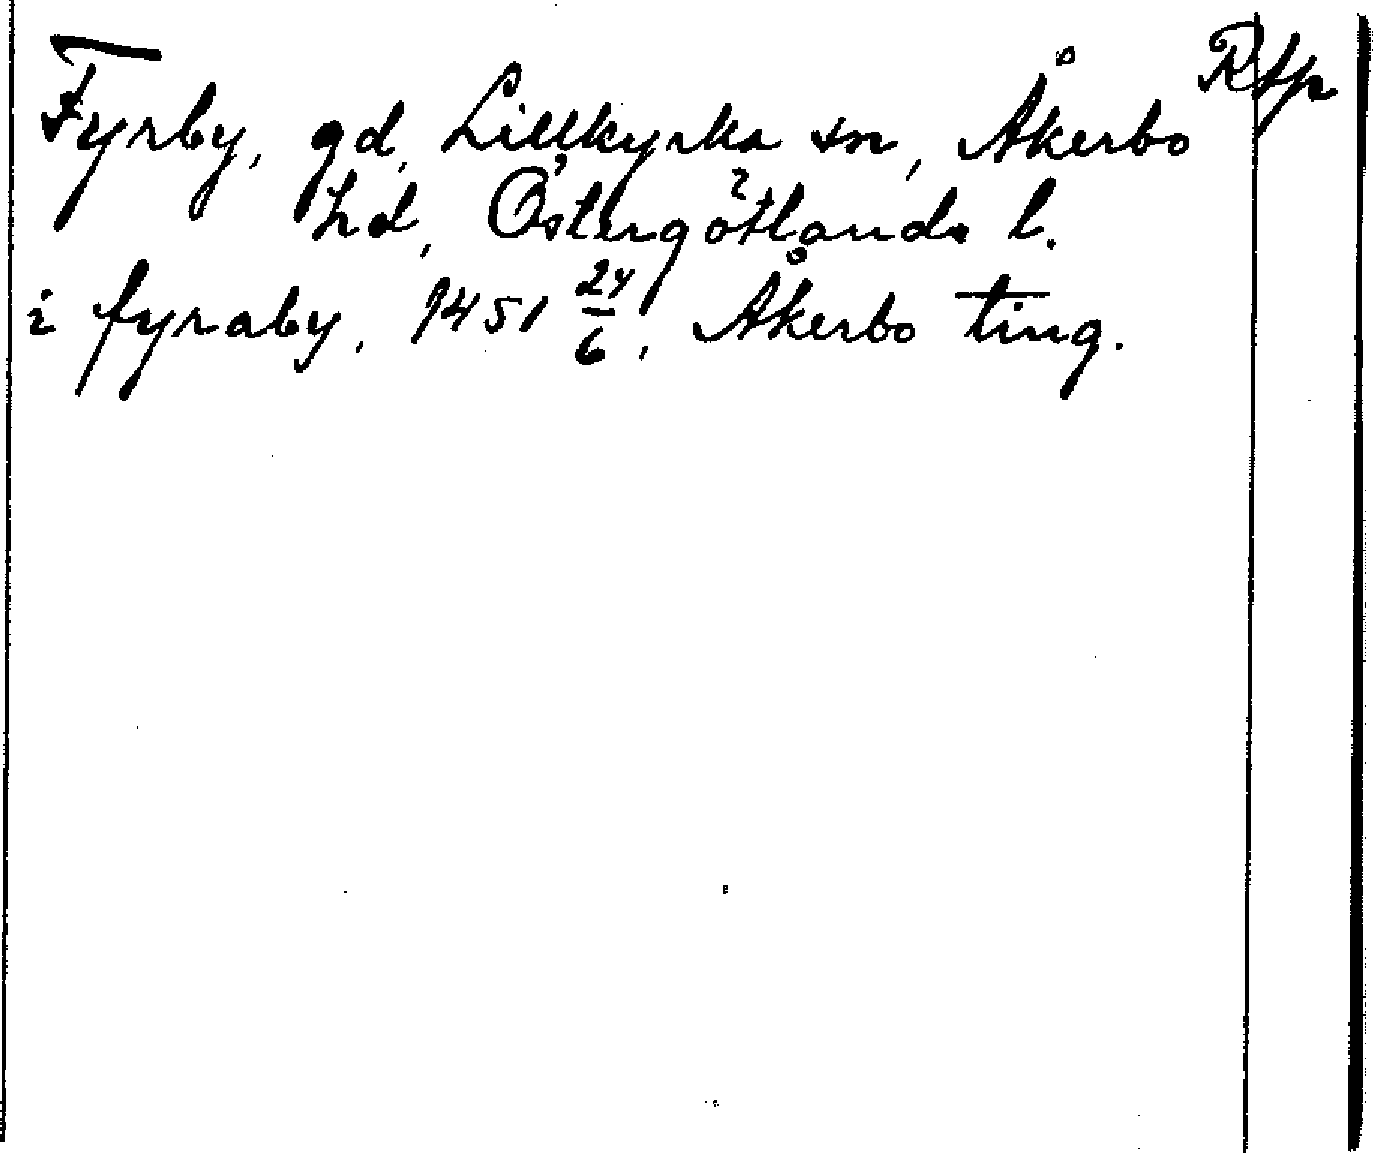 Rfp
Fyrby, gd, Lillkyrka sn, Åkerbo
hd, Östergötlands l.
i fyraby, 1451 24/6, Åkerbo ting.